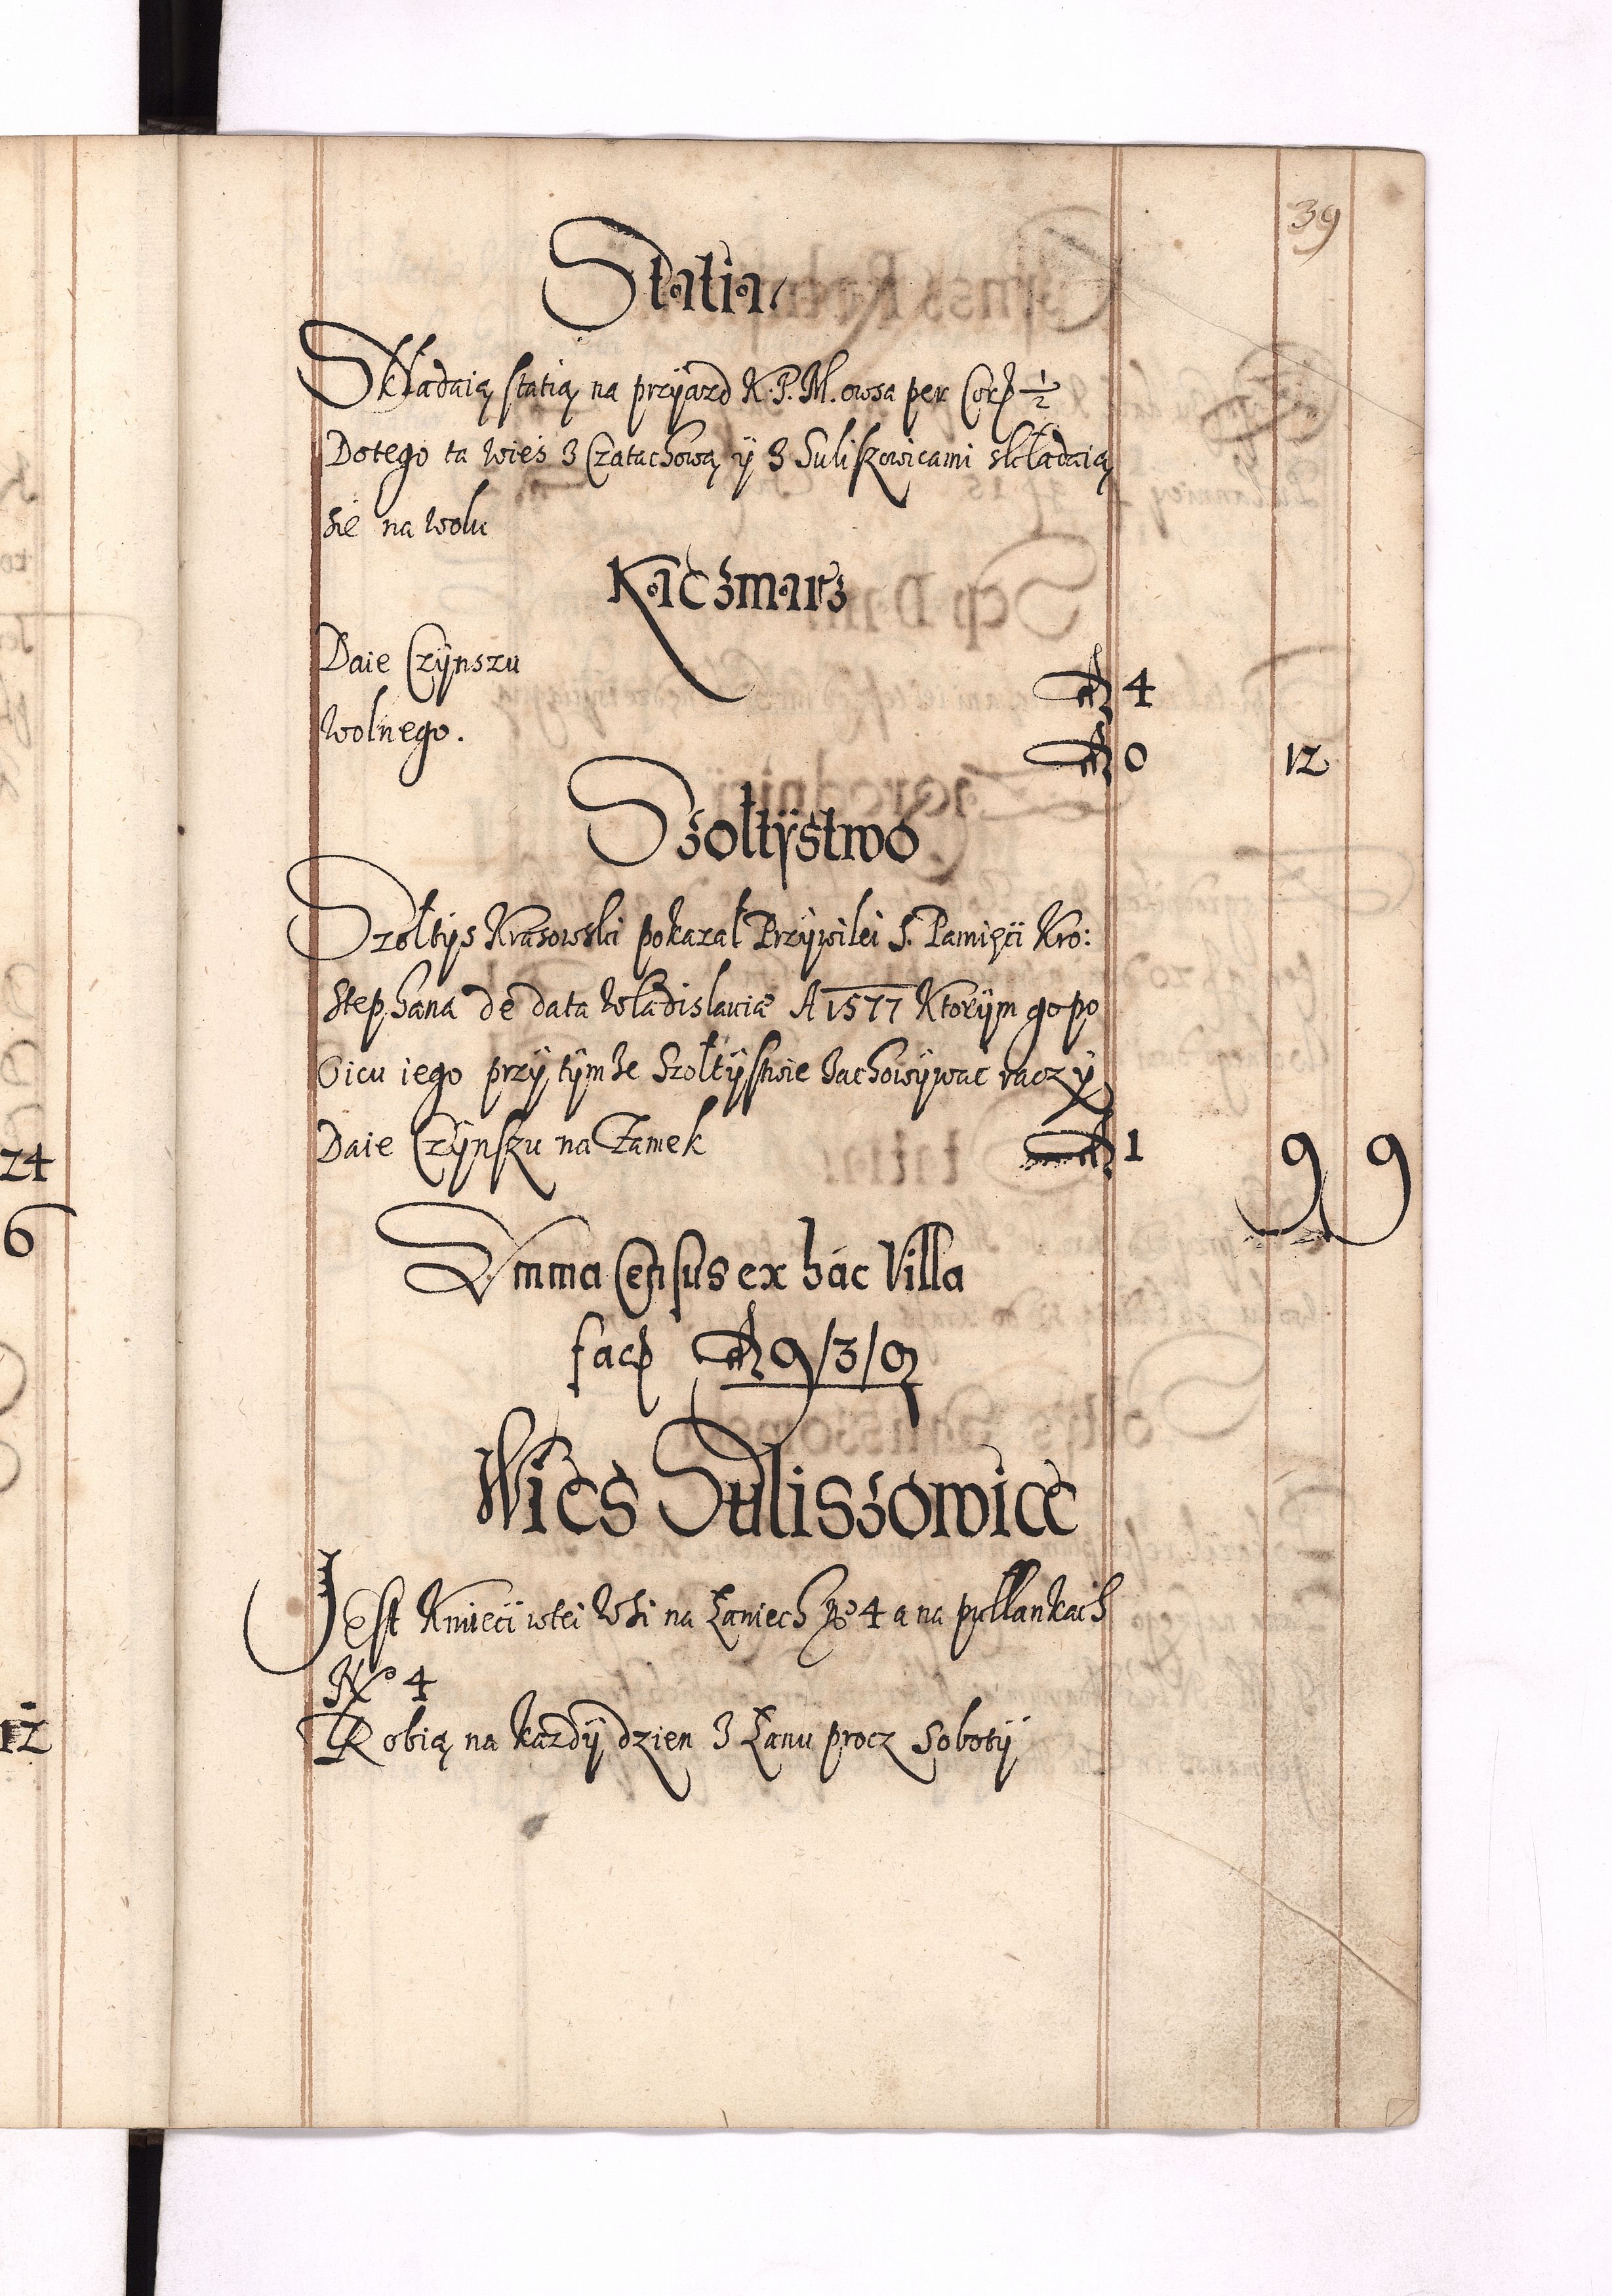 39
Statia
Składaią statią na przyiazd K. P. M. owsa per Cor. 1/2
Dotego ta wieś z Czatachową ÿ z Suliszowicami składaią
się na wołu
Kaczmarz
Daie Czÿnszu 4
wolnego. 0 12
Szołtÿstwo
Szołtÿs Krasowski pokazał Przÿwilei S. Pamięci Kro:
Stephana de data Wladislavia A 1577 Ktorÿm go po
Oicu iego przÿ tÿmże Szołtÿstwie zachowÿwac raczÿ
Daie Czÿnszu na Zamek 1 9 9
Summa Census ex hac Villa
fac 9/3/9
Wies Suliszowice
Jest Kmieci wtei Wsi na Łaniech No 4 a na pułłankach
No 4
Robią na każdÿ dzien z Łanu procz Sobotÿ
24
6
12